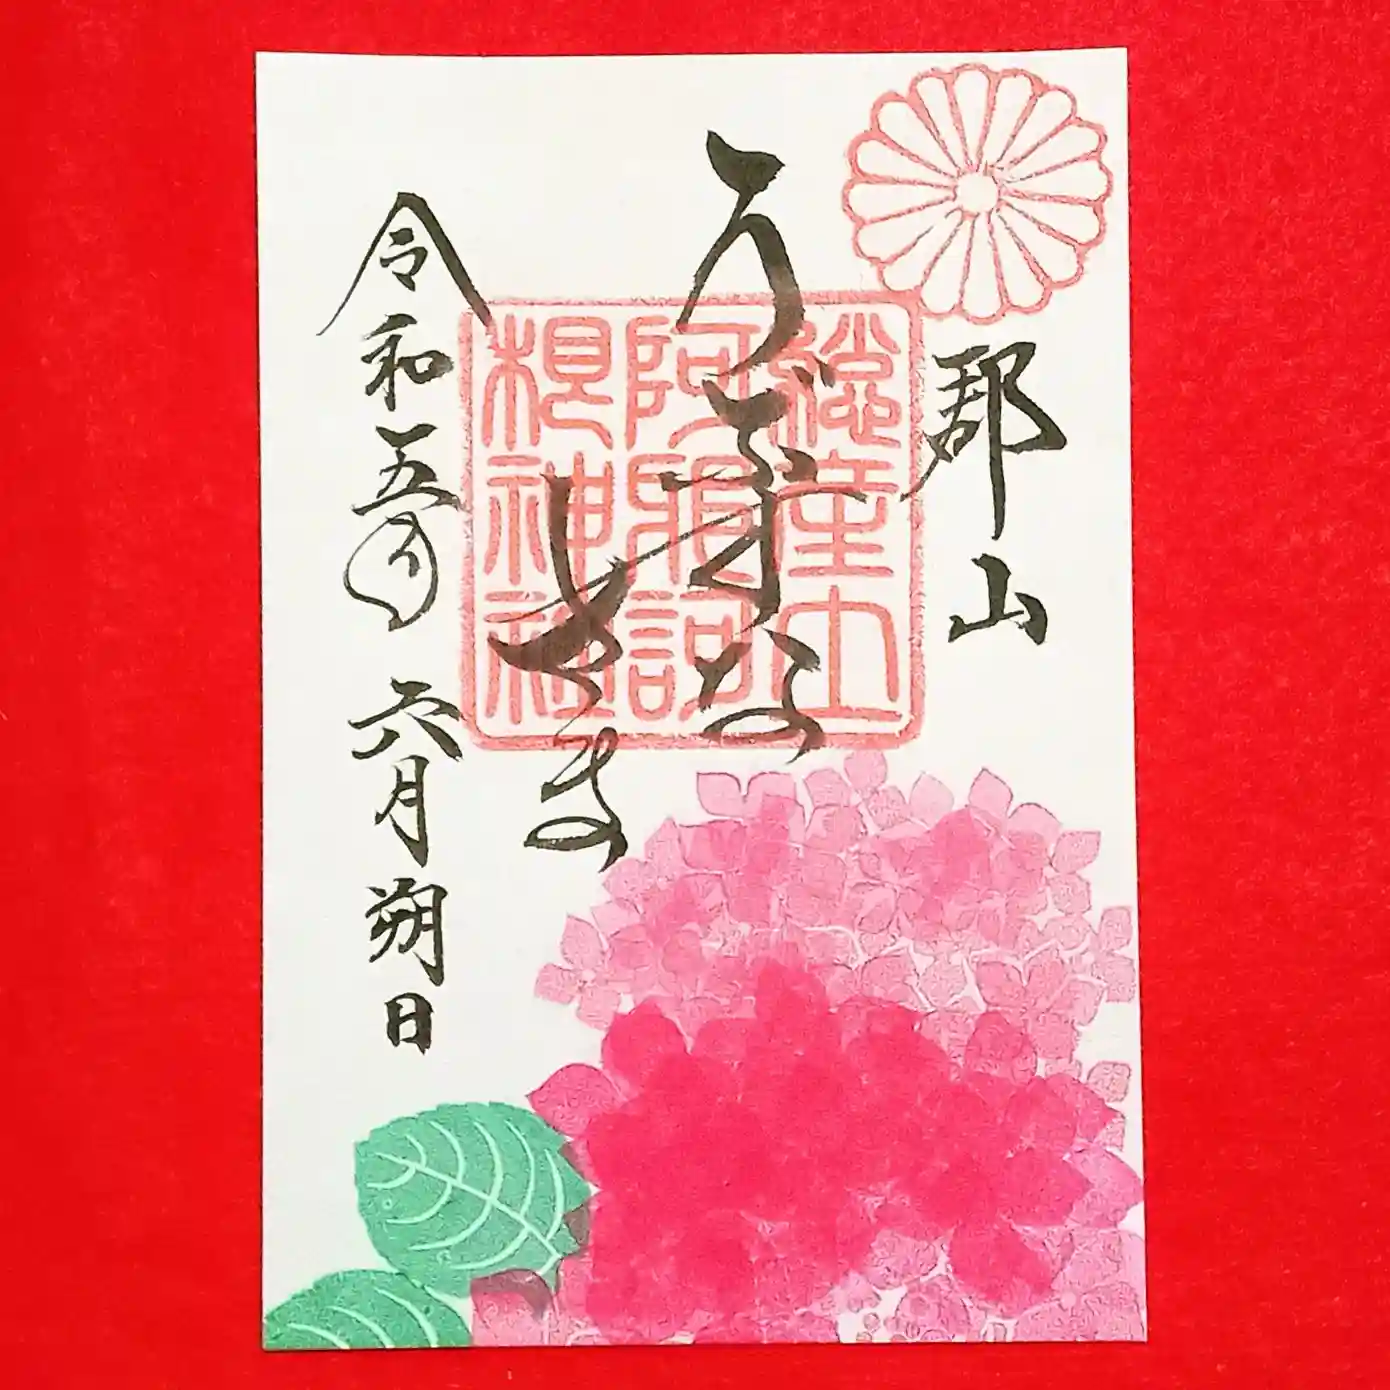 郡山
うぶすな
さま
總産土
阿邪訶
根神社
令和五年
六月朔日